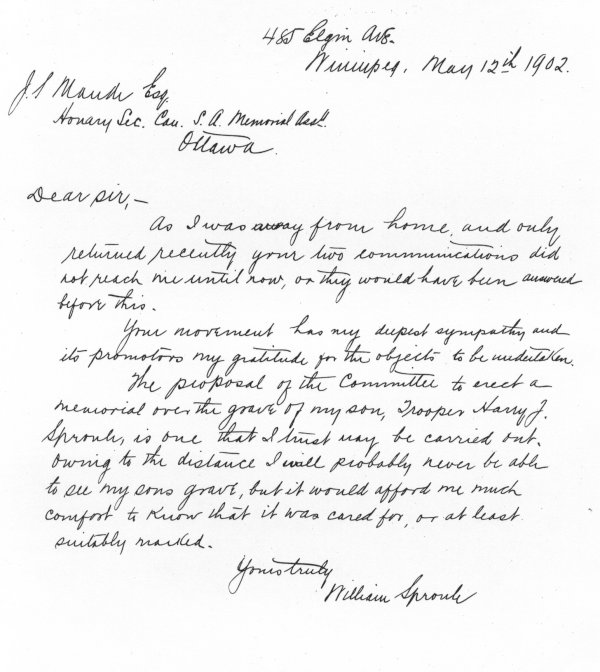 485 Elgin Ave.
Winnipeg, May 12th 1902.
J. S Maude Esq
Honary Sec. Can. S. A. Memorial Assn.
Ottawa.
Dear sir,-
As I was away from home, and only
returned recently your two communications did
not reach me until now, or they would have been answered
before this.
Your movement has my deepest sympathy and
its promotors my gratitude for the objects to be undertaken.
The proposal of the Committee to erect a
memorial over the grave of my son, Trooper Harry J.
Sproule, is one that I trust may be carried out.
Owing to the distance I will probably never be able
to see my sons grave, but it would afford me much
comfort to know that it was cared for, or at least
suitably marked.
Yours truly
William Sproule